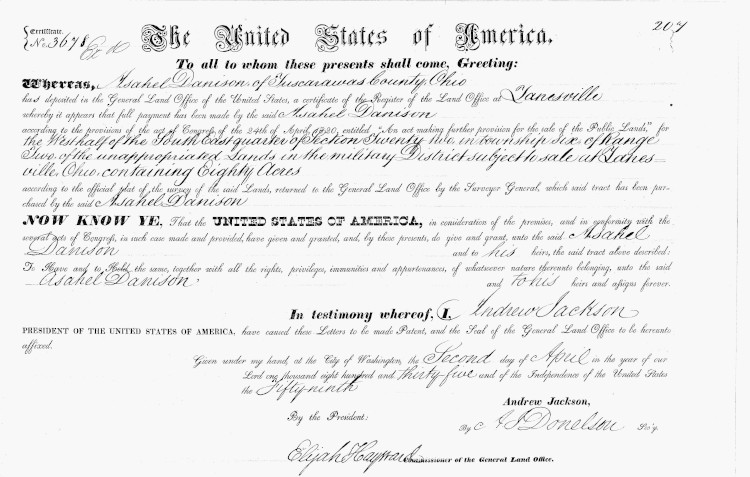 Certificate. The United States of America. 207
No. 3678
To all to whom these presents shall come, Greeting:
Whereas, Asahel Danison, of Tuscarawas County, Ohio
has deposited in the General Land Office of the United States, a certificate of the Register of the Land Office at Zanesville
whereby it appears that full payment has been made by the said Asahel Danison
according to the provisions of the act of Congress of the 24th of April, 1820, entitled "An act making further provision for the sale of the Public Lands," for
the West half of the South East quarter of Section Twenty two, in township Six, of Range
Two, of the unappropriated Lands in the military District subject to sale at Zanes-
ville, Ohio, containing Eighty Acres
according to the official plat of the survey of the said Lands, returned to the General Land Office by the Surveyor General, which said tract has been pur-
chased by the said Asahel Danison
NOW KNOW YE, That the UNITED STATES OF AMERICA, in consideration of the premises, and in conformity with the
several acts of Congress, in such case made and provided, have given and granted, and, by these presents, do give and grant, unto the said Asahel
Danison and to his heirs, the said tract above described:
To Have and to Hold the same, together with all the rights, privileges, immunities and appurtenances, of whatsoever nature thereunto belonging, unto the said
Asahel Danison, and to his heirs and assigns forever.
In testimony whereof, I, Andrew Jackson
PRESIDENT OF THE UNITED STATES OF AMERICA, have caused these Letters to be made Patent, and the Seal of the General Land Office to be hereunto
affixed.
Given under my hand, at the City of Washington, the Second day of April in the year of our
Lord one thousand eight hundred and thirty five and of the Independence of the United States
the Fifty-ninth
Andrew Jackson,
By the President:
By A J Donelson Sec'y.
Elijah Hayward Commissioner of the General Land Office.